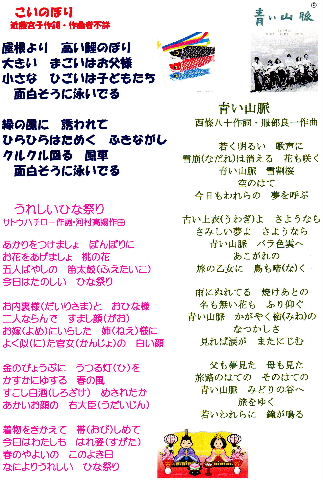 こいのぼり
近藤宮子作詞・作曲者不詳
屋根より 高い鯉のぼり
大きい まごいはお父様
小さな ひごいは子どもたち
面白そうに泳いでる
緑の風に 誘われて
ひらひらはためく ふきながし
クルクル回る 風車
面白そうに泳いでる
うれしいひな祭り
サトウハチロー作詞・河村直陽作曲
あかりをつけましょ ぼんぼりに
お花をあげましょ 桃の花
五人ばやしの 笛太鼓(ふえたいこ)
今日はたのしい ひな祭り
お内裏様(だいりさま)と おひな様
二人ならんで すまし顔(がお)
お嫁(よめ)にいらした 姉(ねえ)様に
よく似(に)た官女(かんじょ)の 白い顔
金のびょうぶに うつる灯(ひ)を
かすかにゆする 春の風
すこし白酒(しろざけ) めされたか
あかいお顔の 右大臣(うだいじん)
着物をきかえて 帯(おび)しめて
今日はわたしも はれ姿(すがた)
春のやよいの このよき日
なによりうれしい ひな祭り
青い山脈
青い山脈
西條八十作詞・服部良一作曲
若く明るい 歌声に
雪崩(なだれ)は消える 花も咲く
青い山脈 雪割桜
空のはて
今日もわれらの 夢を呼ぶ
青い上衣(うわぎ)よ さようなら
さみしい夢よ さようなら
青い山脈 バラ色雲へ
あこがれの
旅の乙女に 鳥も啼(なく)
雨にぬれてる 焼けあとの
名も無い花も ふり仰ぐ
青い山脈 かがやく嶺(みね)の
なつかしさ
見れば涙が またにじむ
父も夢見た 母も見た
旅路のはての そのはての
青い山脈 みどりの谷へ
旅をゆく
若いわれらに 鐘が鳴る